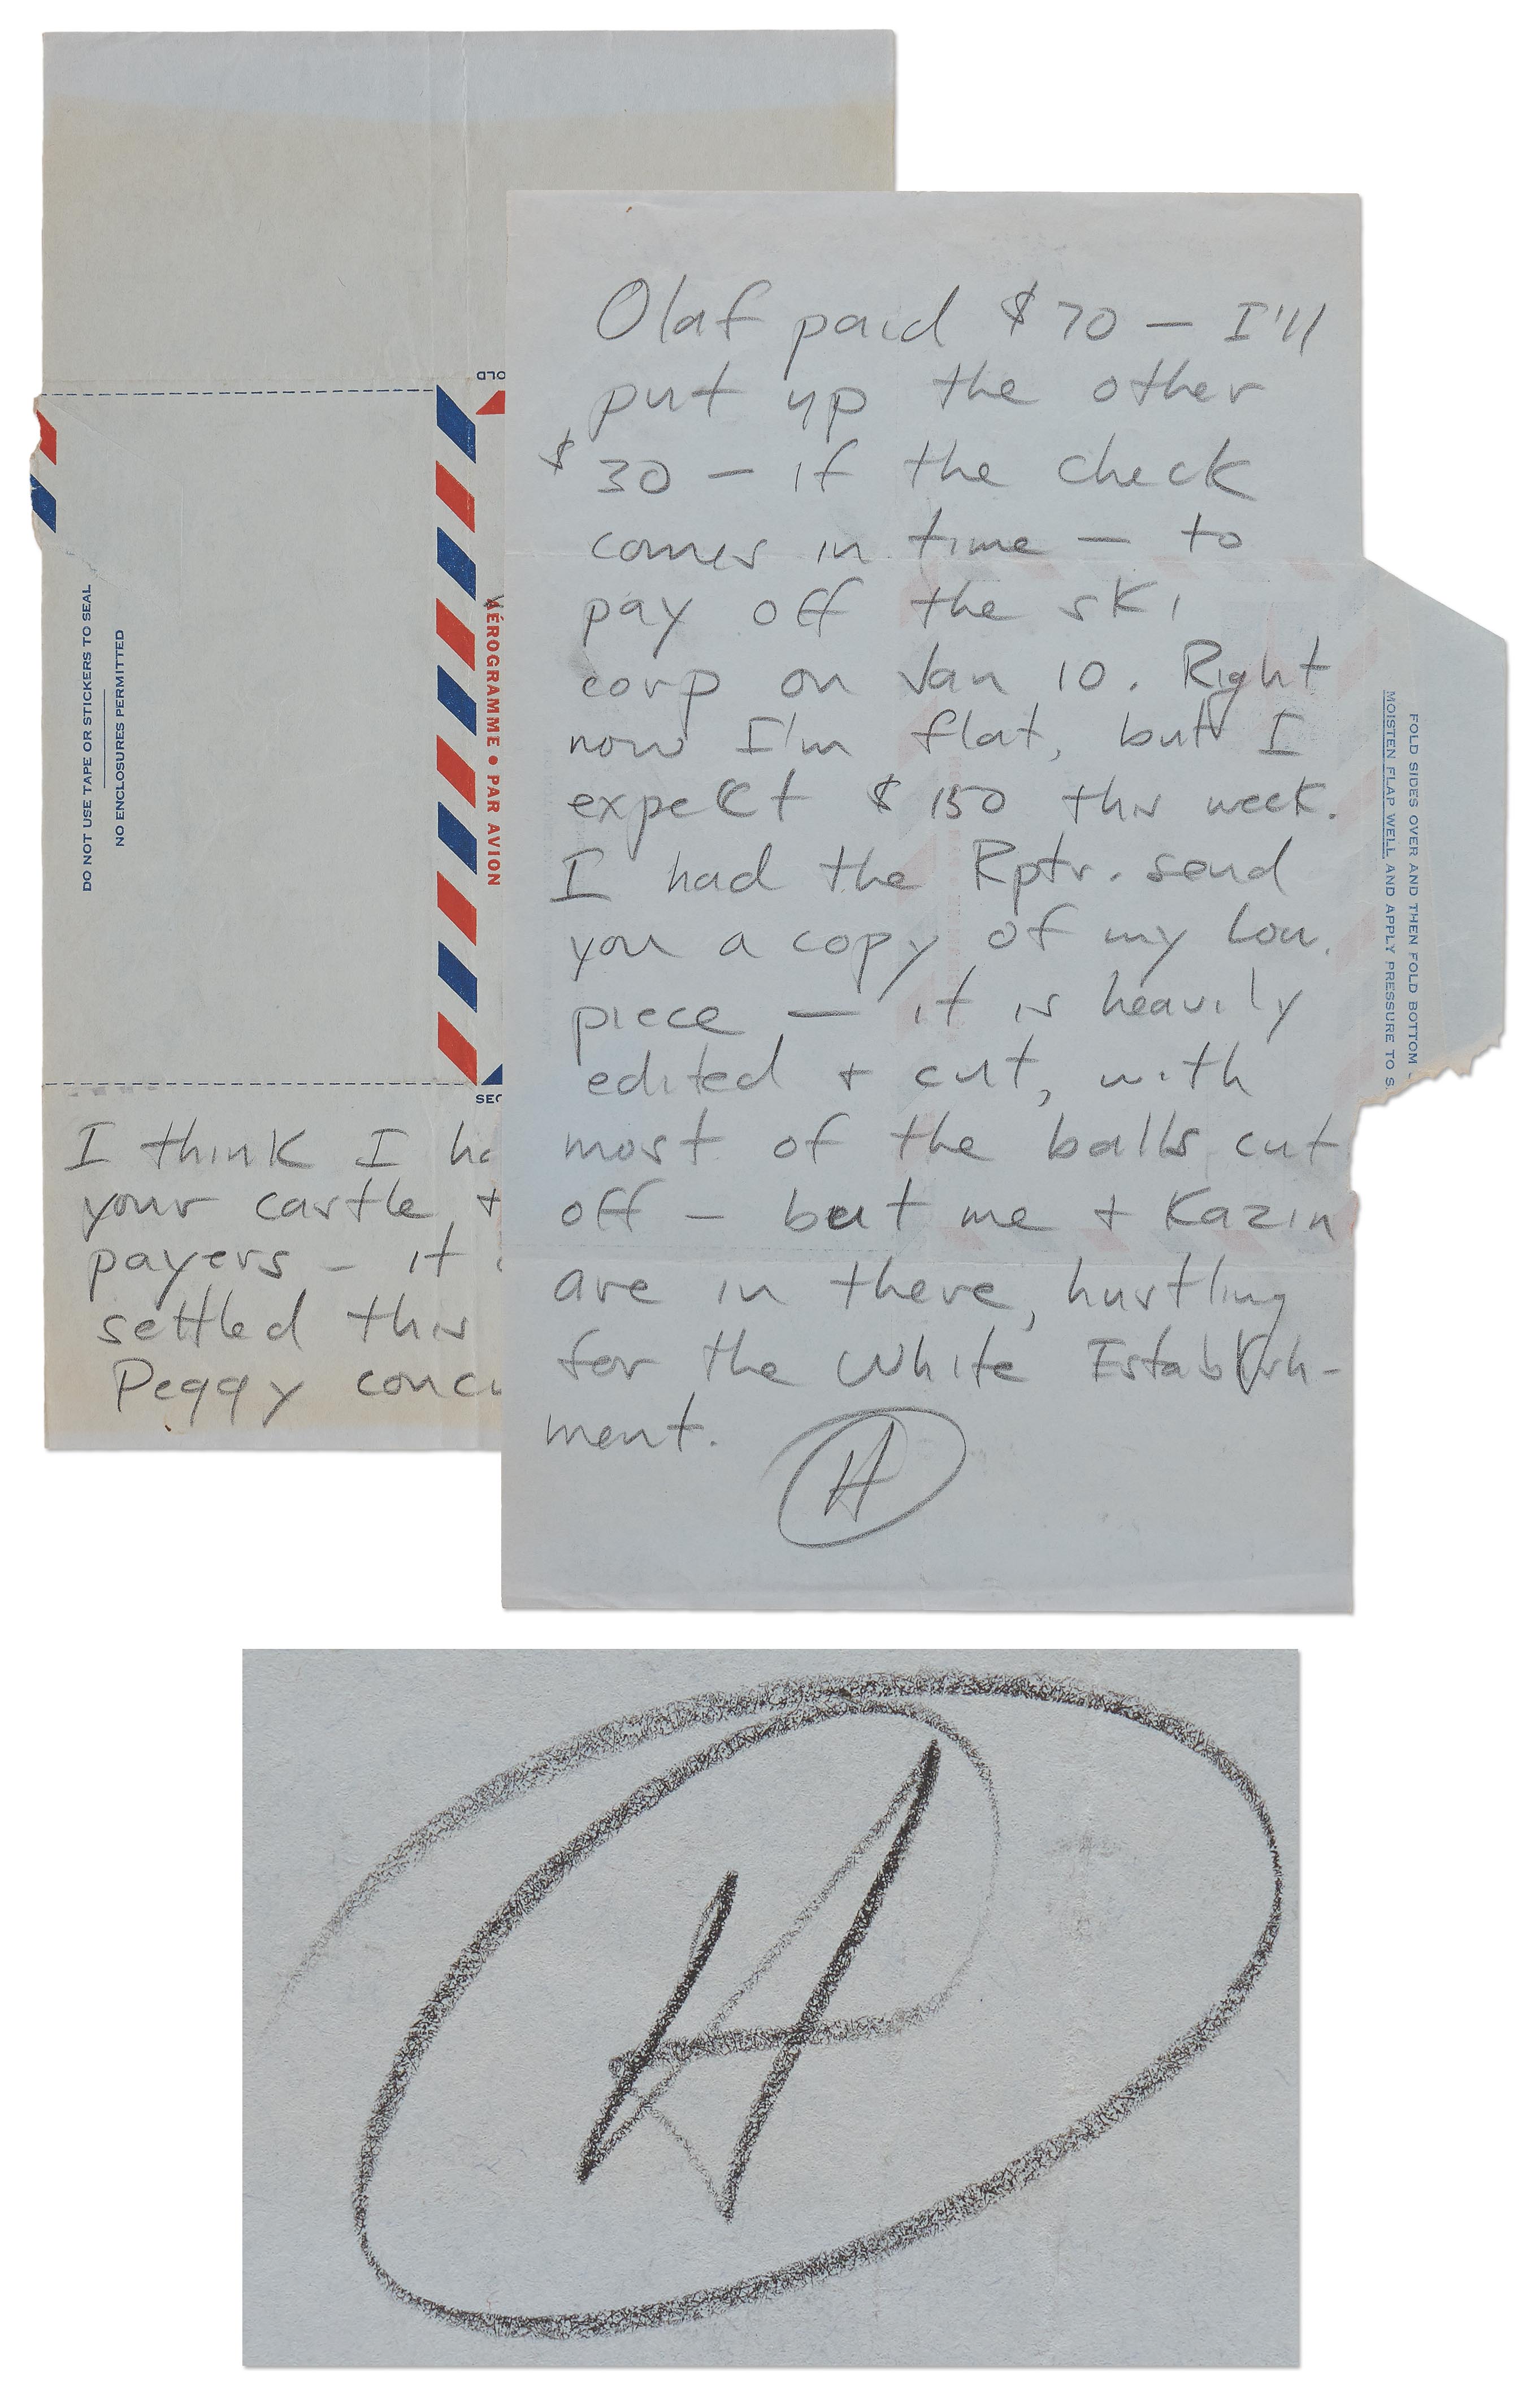 OLD
DO NOT USE TAPE OR STICKERS TO SEAL
NO ENCLOSURES PERMITTED
AÉROGRAMME • PAR AVION
SEC
I think I ha
your castle +
payers – it
settled this
Peggy conc
Olaf paid $70 — I'll
put up the other
$30 — if the check
comes in time — to
pay off the ski
corp on Jan 10. Right
now I'm flat, but I
expect $150 this week.
I had the Rptr. send
you a copy of my Lou.
piece — it is heavily
edited + cut, with
most of the balls cut
off — but me + Kazin
are in there, hustling
for the White Establish-
ment.
H
FOLD SIDES OVER AND THEN FOLD BOTTOM
MOISTEN FLAP WELL AND APPLY PRESSURE TO S
H